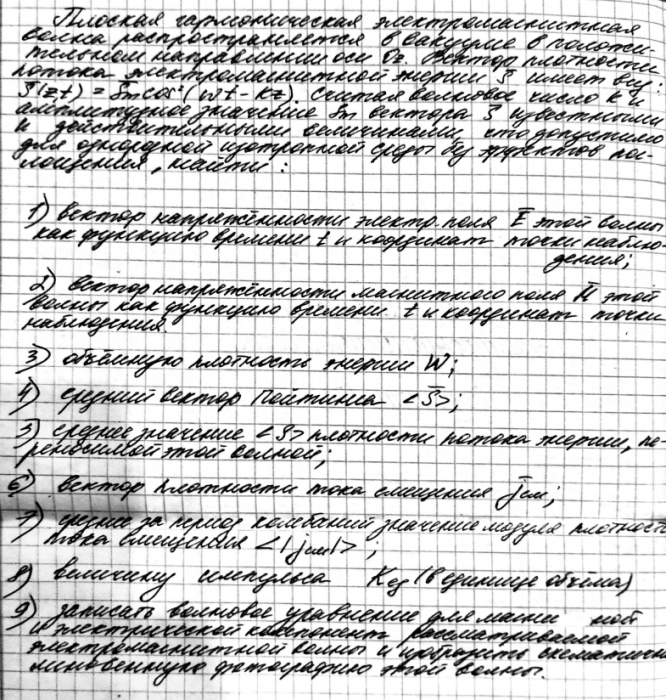 Плоская гармоническая электромагнитная
волна распространяется в вакууме в положи-
тельном направлении оси Oz. Вектор плотности
потока электромагнитной энергии S̄ имеет вид:
S̄(z,t) = S̄m cos²(wt - kz). Считая волновое число k и
амплитудное значение S̄m вектора S̄ известными
и действительными величинами, что допустимо
для однородной изотропной среды без эффектов по-
глощения, найти:
1) вектор напряжённости электр. поля Ē этой волны
как функцию времени t и координат точки наблю-
дения;
2) вектор напряжённости магнитного поля H̄ этой
волны как функцию времени t и координат точки
наблюдения.
3) объёмную плотность энергии W;
4) средний вектор Пойтинга <S̄>;
5) среднее значение <S> плотности потока энергии, пе-
реносимой этой волной;
6) вектор плотности тока смещения j̄см;
7) среднее за период колебаний значение модуля плотности
тока смещения <|jсм|>;
8) величину импульса Kед (в единице объёма)
9) записать волновое уравнение для магни ной
и электрической компонент рассматриваемой
электромагнитной волны и изобразить схематично
мгновенную фотографию этой волны.